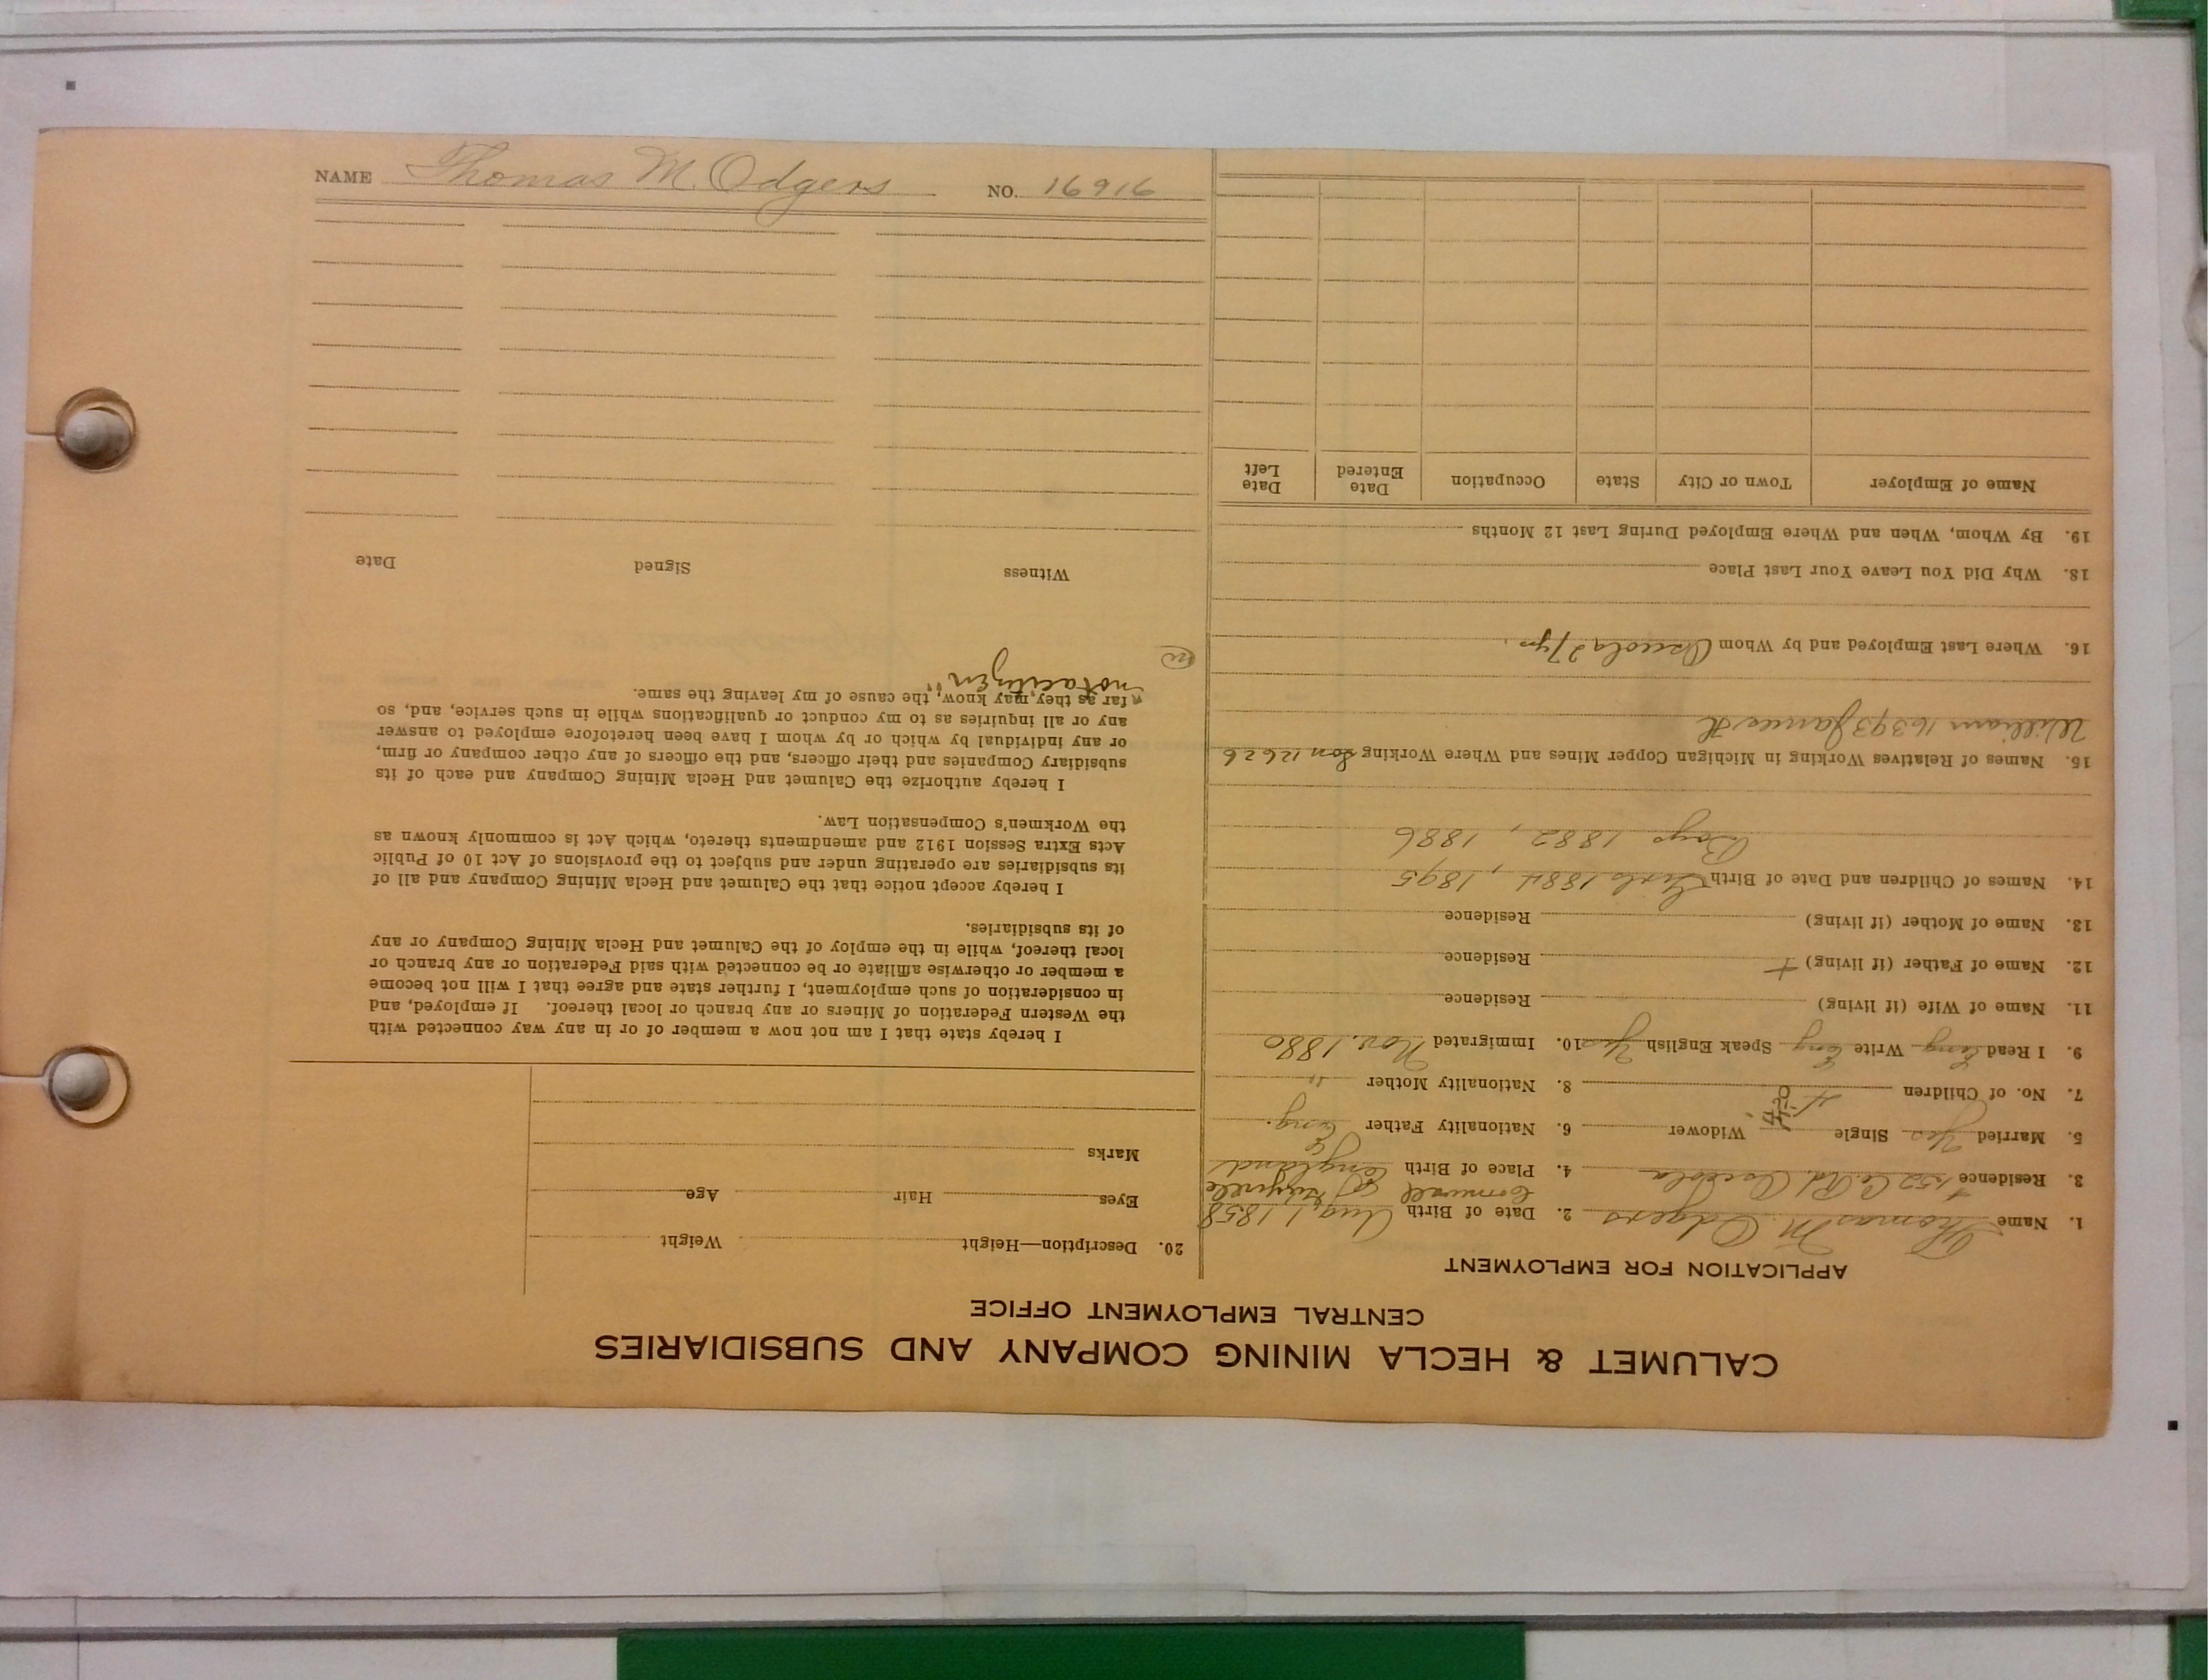 CALUMET & HECLA MINING COMPANY AND SUBSIDIARIES
CENTRAL EMPLOYMENT OFFICE
APPLICATION FOR EMPLOYMENT
1. Name Thomas M. Odgers 2. Date of Birth Aug, 1 1858
Cornwall
3. Residence 152 Co. Rd. Osceola 4. Place of Birth England
5. Married Yes Single Widower 6. Nationality Father Eng.
7. No. of Children 4 8. Nationality Mother "
9. I Read Eng Write Eng Speak English Yes 10. Immigrated Nov. 1880
11. Name of Wife (if living) Residence
12. Name of Father (if living) Residence
13. Name of Mother (if living) Residence
14. Names of Children and Date of Birth Girls 1884, 1895
Boys 1882, 1886
15. Names of Relatives Working in Michigan Copper Mines and Where Working Son 12626
William 16393 James H
16. Where Last Employed and by Whom Osceola 27 yrs.
18. Why Did You Leave Your Last Place
19. By Whom, When and Where Employed During Last 12 Months
Name of Employer Town or City State Occupation Date Entered Date Left
20. Description—Height Weight
Eyes Hair Age
Marks
I hereby state that I am not now a member of or in any way connected with
the Western Federation of Miners or any branch or local thereof. If employed, and
in consideration of such employment, I further state and agree that I will not become
a member or otherwise affiliate or be connected with said Federation or any branch or
local thereof, while in the employ of the Calumet and Hecla Mining Company or any
of its subsidiaries.
I hereby accept notice that the Calumet and Hecla Mining Company and all of
its subsidiaries are operating under and subject to the provisions of Act 10 of Public
Acts Extra Session 1912 and amendments thereto, which Act is commonly known as
the Workmen's Compensation Law.
I hereby authorize the Calumet and Hecla Mining Company and each of its
subsidiary Companies and their officers, and the officers of any other company or firm,
or any individual by which or by whom I have been heretofore employed to answer
any or all inquiries as to my conduct or qualifications while in such service, and, so
far as they may know, the cause of my leaving the same.
"not a citizen"
Witness Signed Date
NAME Thomas M. Odgers NO. 16916